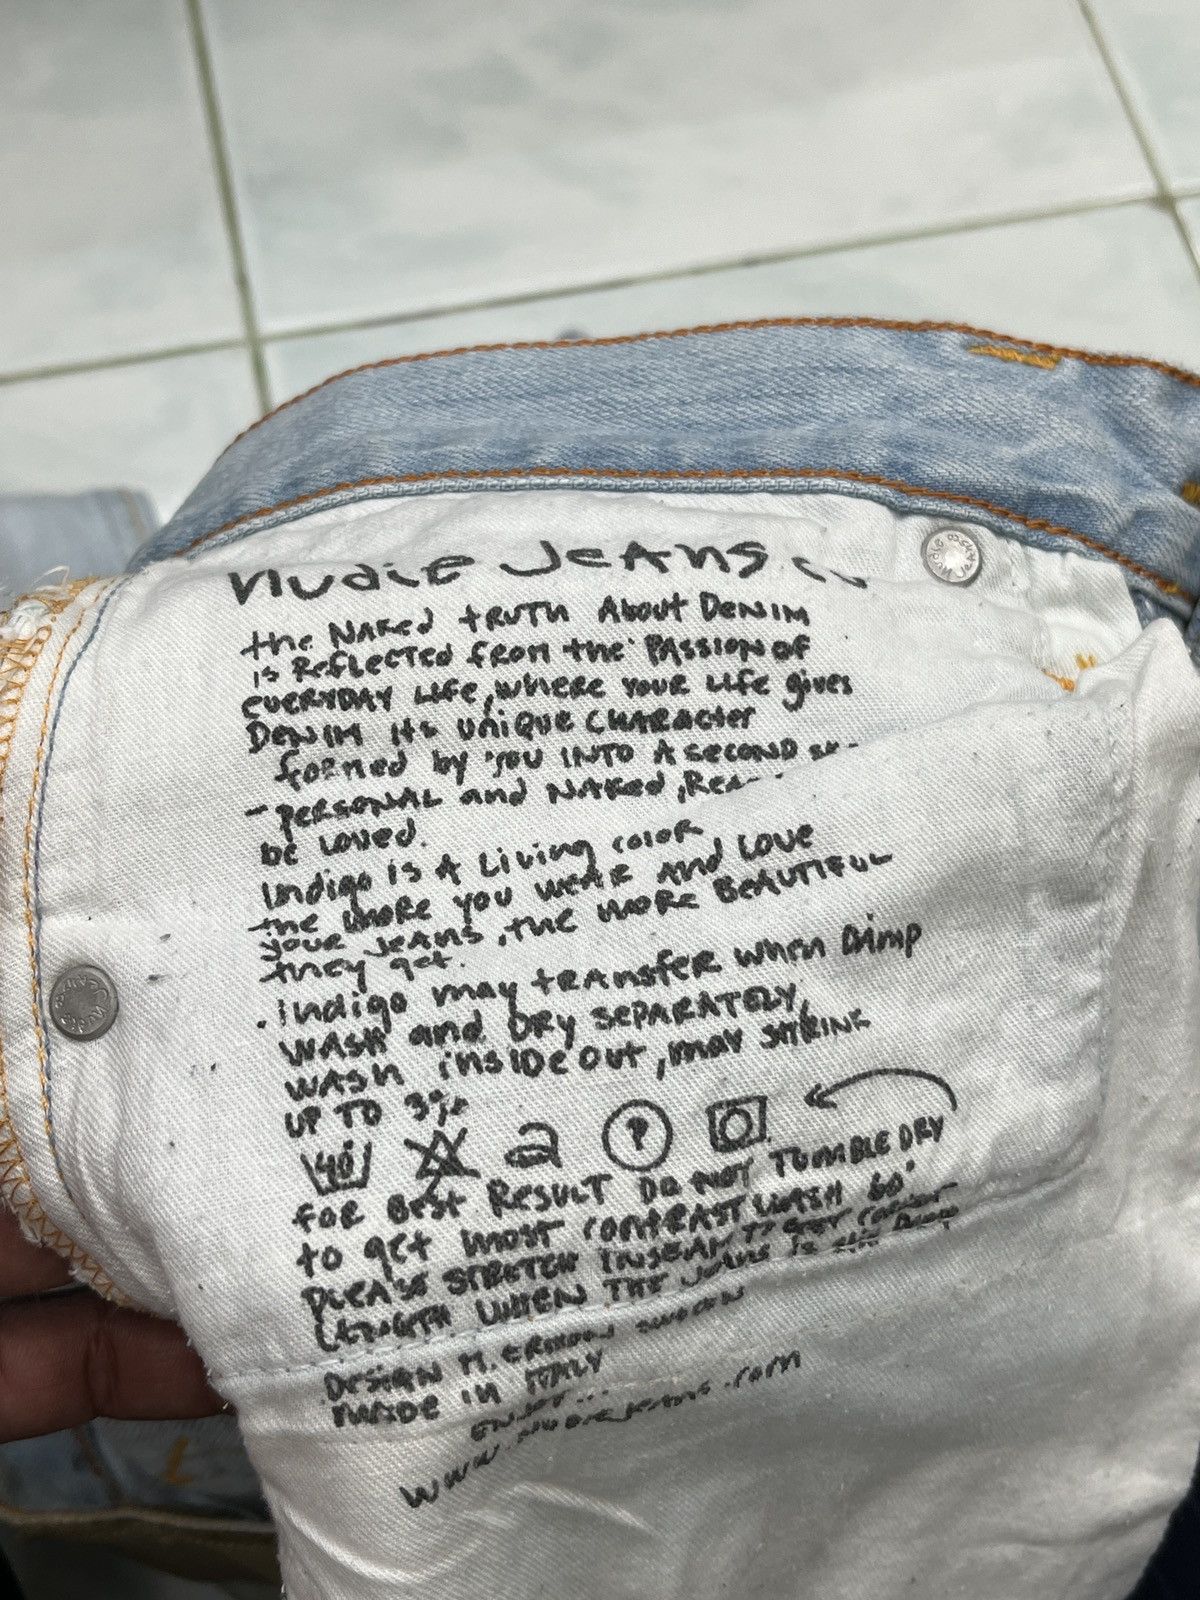 nudie JeAns co
the NAKed tRUTH About DENIM
is ReflECTED fROM the PASSION OF
EVERYDAY LIFE, WHERE YOUR LIFE gives
DENIM Its UNIQUE CHARACTER
formed by YOU INTO A SECOND
- PERSONAL and NAKED,
be LOVED.
Indigo is A Living coloR
the MORE you WEAR AND LOVE
YOUR JEANS, the MORE BEAUTIFUL
they get.
. Indigo may tRANSfER WHEN DAMP
WASH and DRY SEPARATELY,
WASH INSIDE OUT, MAY SHRINK
UP TO 3%
40
foR BEST RESULT DO NOT TUMBLE DRY
to get MOST CONTRAST WASH 60°
PLEASE STRETCH INSEAM TO GET CORRECT
LENGTH WHEN THE JEANS IS still DAMP
DESIGN M. ERIXON SWEDEN
MADE IN ITALY
ENJOY...
www.nudiejeans.com